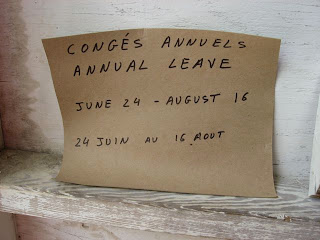 CONGÉS ANNUELS
ANNUAL LEAVE
JUNE 24 - AUGUST 16
24 JUIN AU 16 AOUT